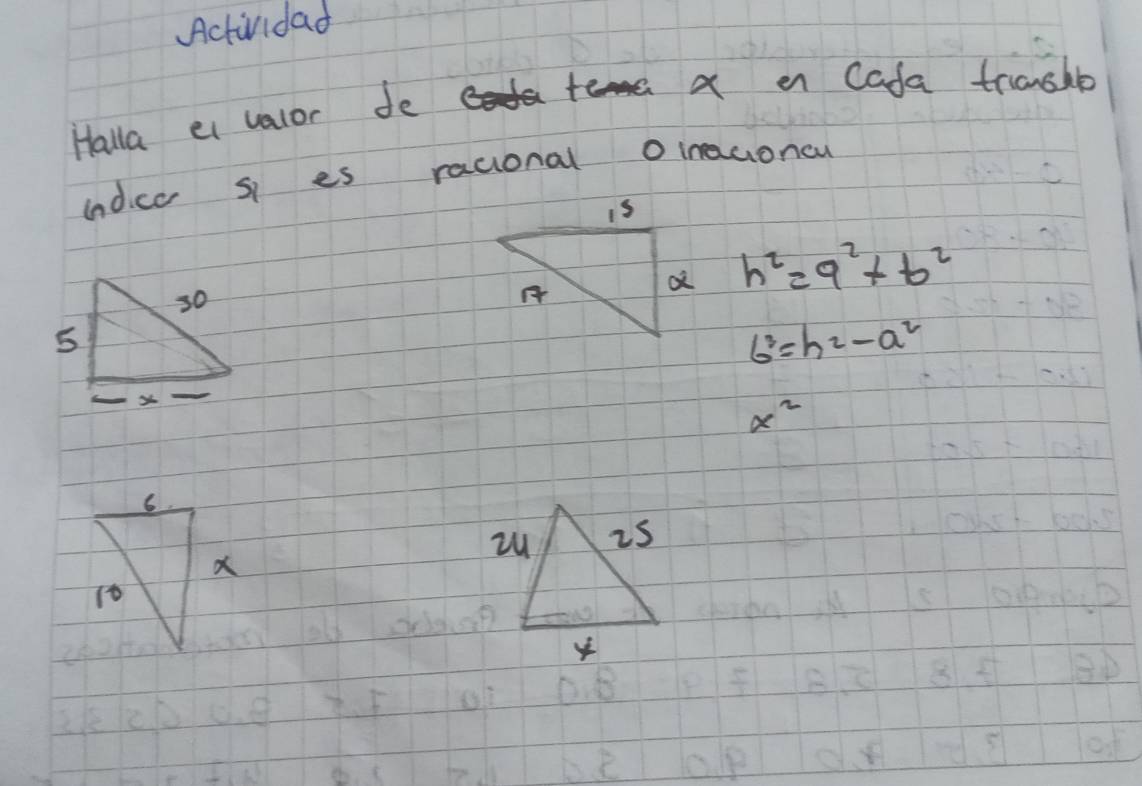 Actividad
Halla el valor de x en cada triangulo
indicar si es racional o irracional
15
30
5
17
x
h²=a²+b²
b²=h²-a²
x
x²
6
24
25
x
10
x